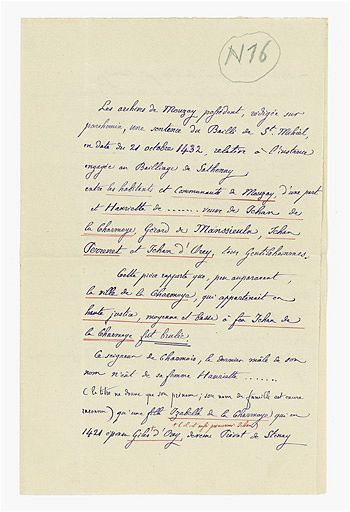 N 16
Les archives de Mouzay possèdent, rédigée sur
parchemin, une sentence du Bailli de St. Mihiel,
en date du 21 octobre 1432, relative à l'instance
engagée au Bailliage de Sathenay
entre les habitants et Communauté de Mouzay d'une part
et Henriette de ........ veuve de Jehan de
la Charmoye Gérard de Manssieula, Jehan
Perrenet et Jehan d'Orey, tous Gentilshommes.
Cette pièce rapporte que, peu auparavant,
la ville de la Charmoye, qui appartenait en
haute justice, moyenne et basse à feu Jehan de
la Charmoye fut brulée.
Ce seigneur de Charmois, le dernier mâle de son
nom n'eût de sa femme Henriette .......
(le titre ne donne que son prénom; son nom de famille est encore
inconnu) qu'une fille Isabelle de la Charmoye qui en
1421 épousa Gilet d'Orey devenu Prévot de Stenay